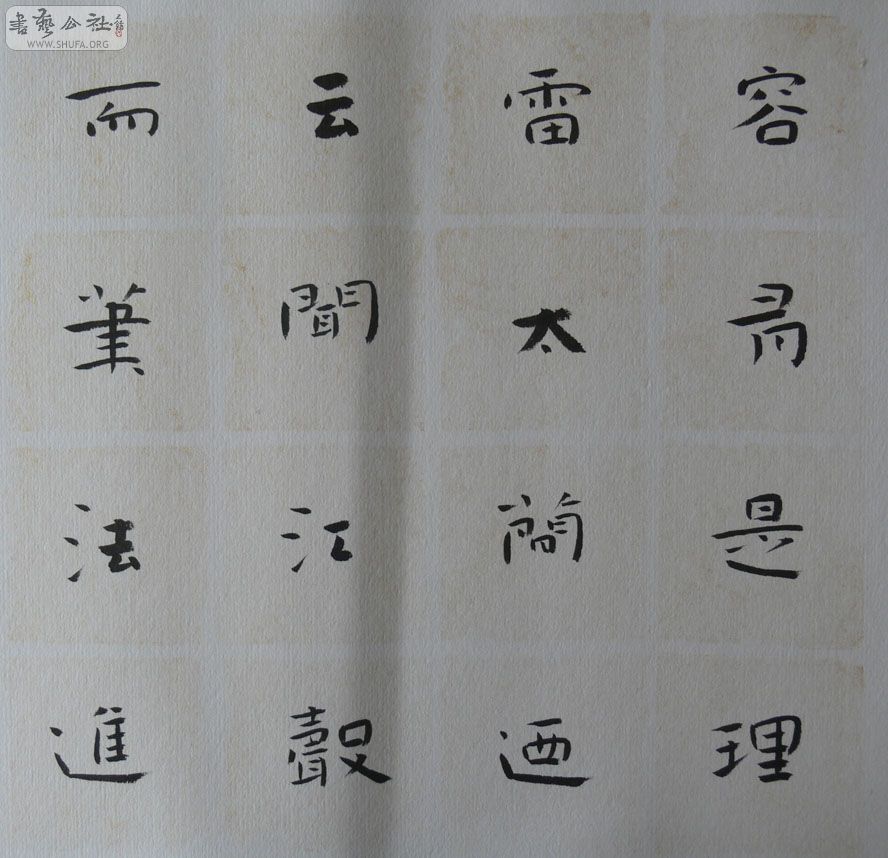 書藝公社
WWW.SHUFA.ORG
容有是理
雷太簡迺
云聞江聲
而筆法進